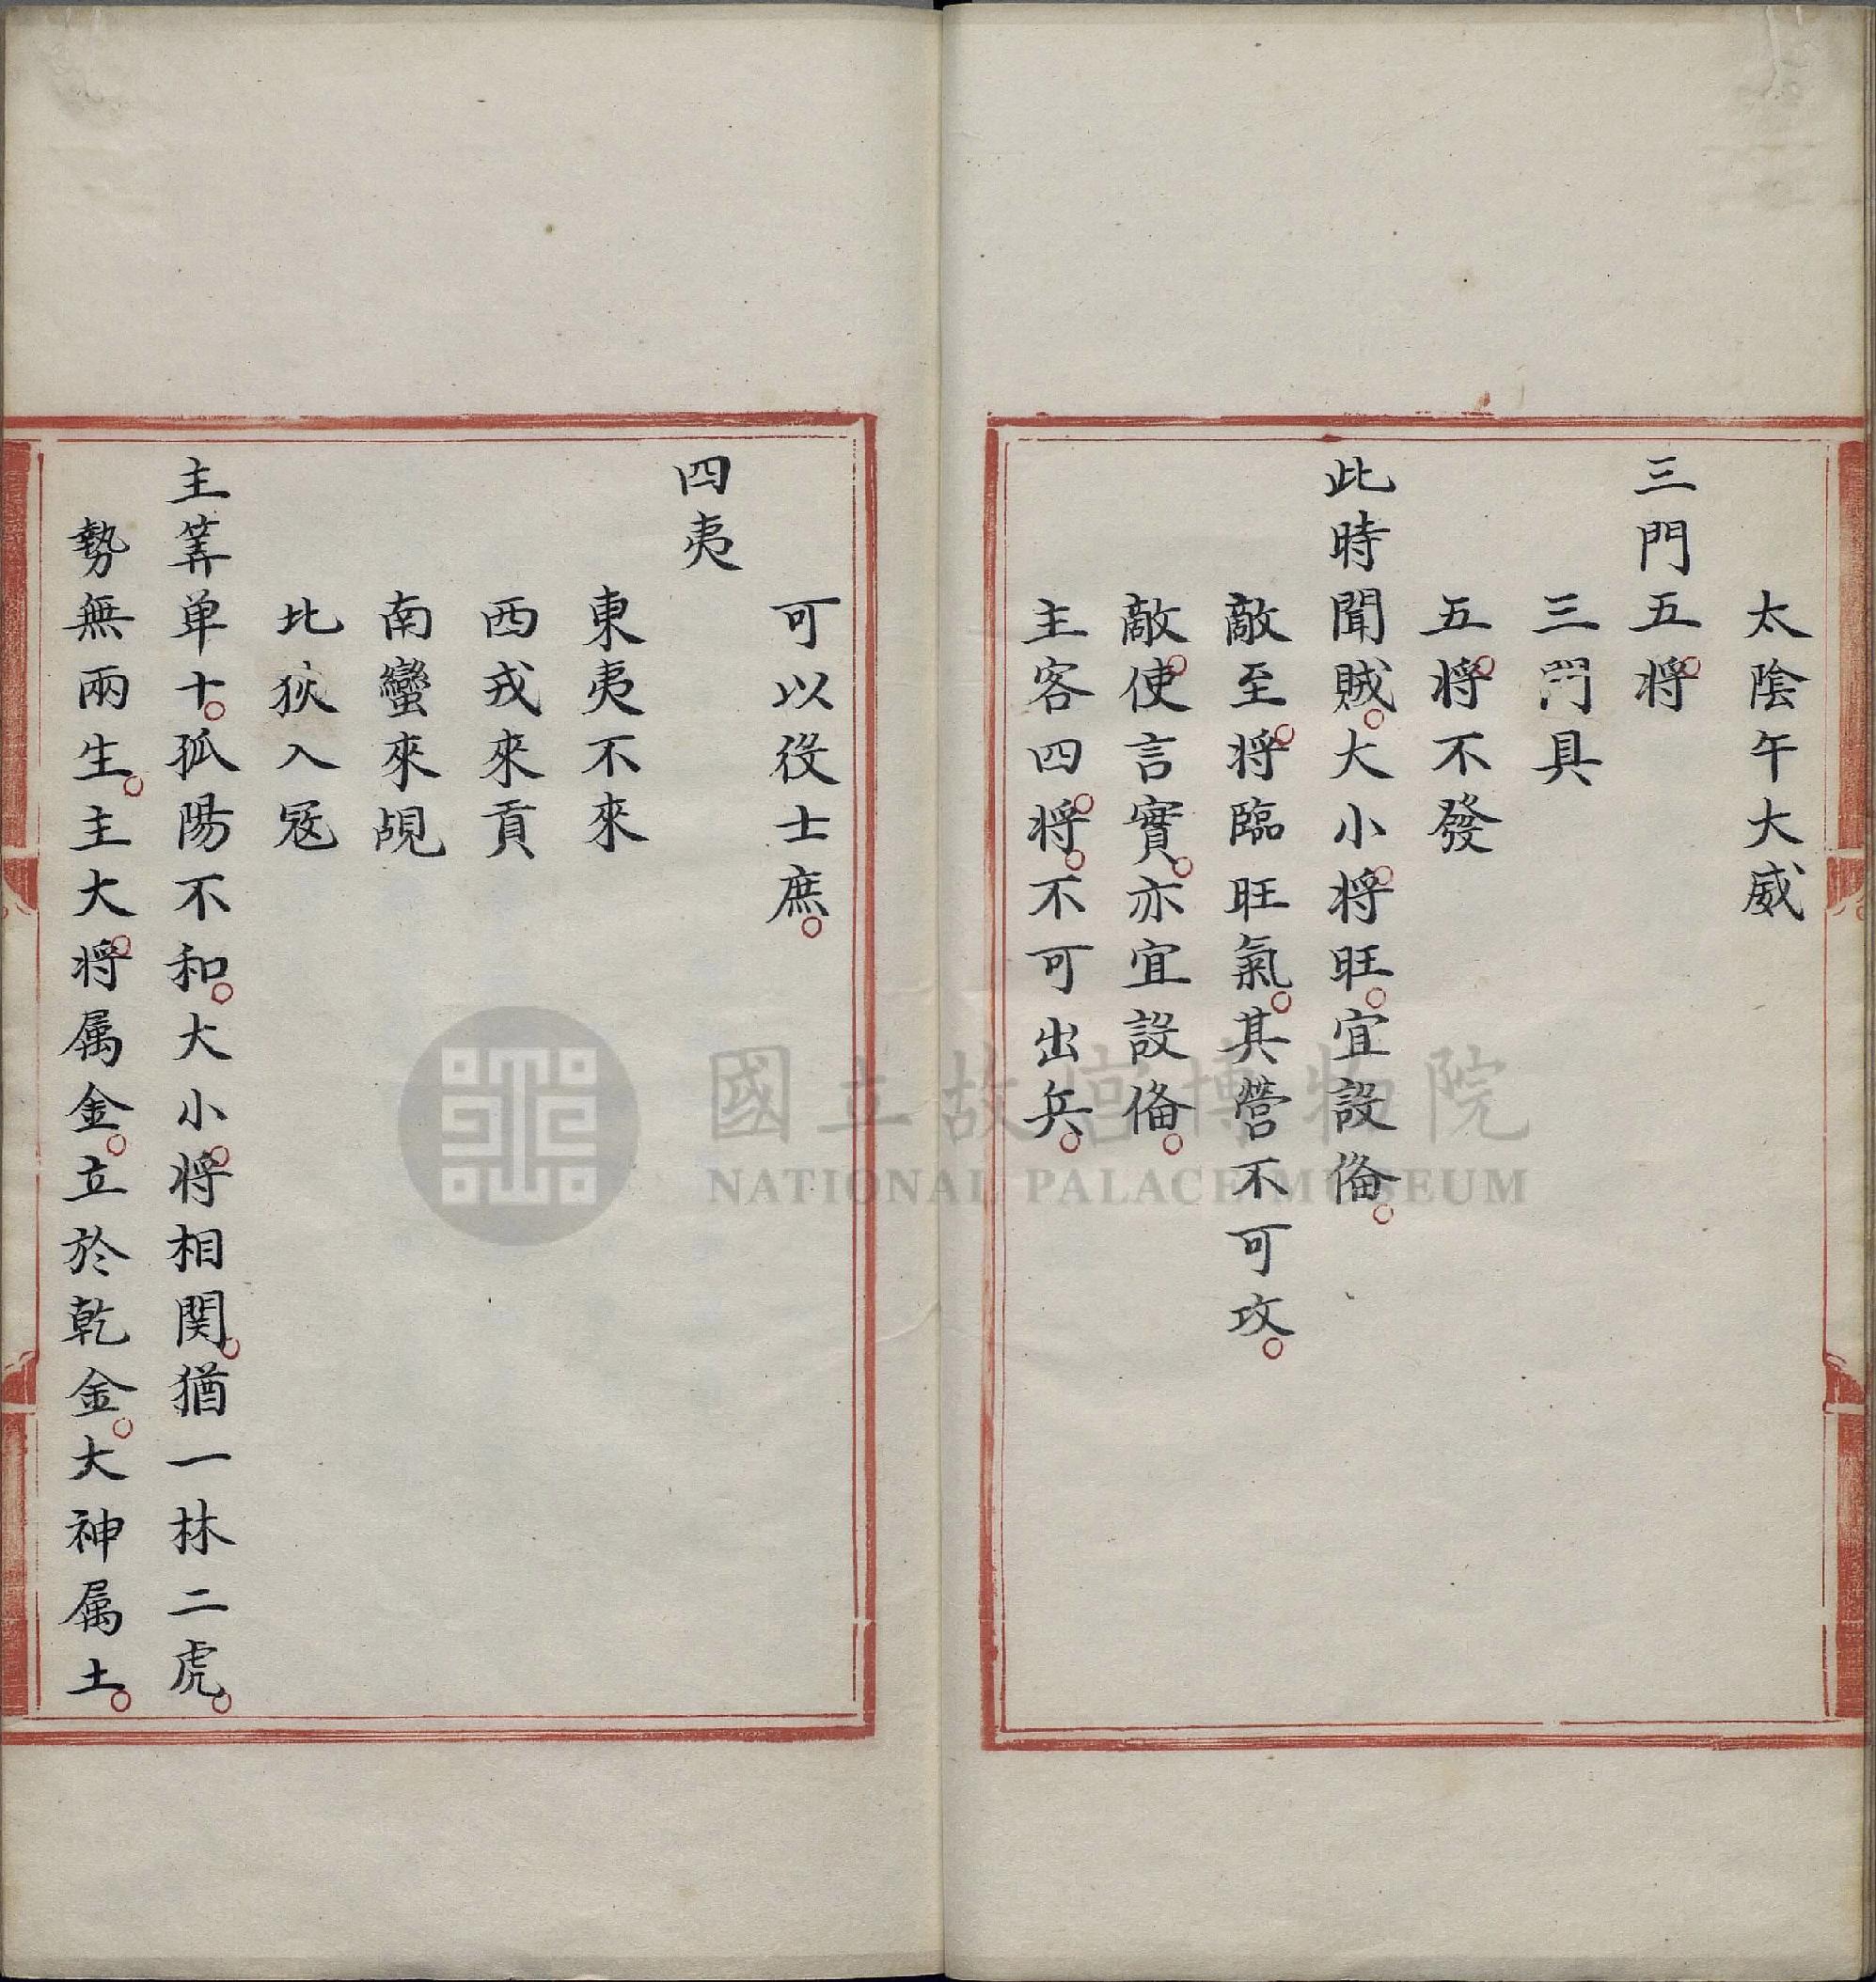 太陰午大威
三門五將
三門具
五將不發
此時聞賊。大小將旺。宜設俻。
敵至。將臨旺氣。其營不可攻。
敵使言實。亦宜設俻。
主客四將。不可出兵。
可以役士庶。
四夷
東夷不來
西戎來貢
南蠻來覘
北狄入冦
主筭单十。孤陽不和。大小將相関。猶一林二虎。
勢無兩生。主大將属金。立於乾金。大神属土。
國立故宮博物院
NATIONAL PALACE MUSEUM